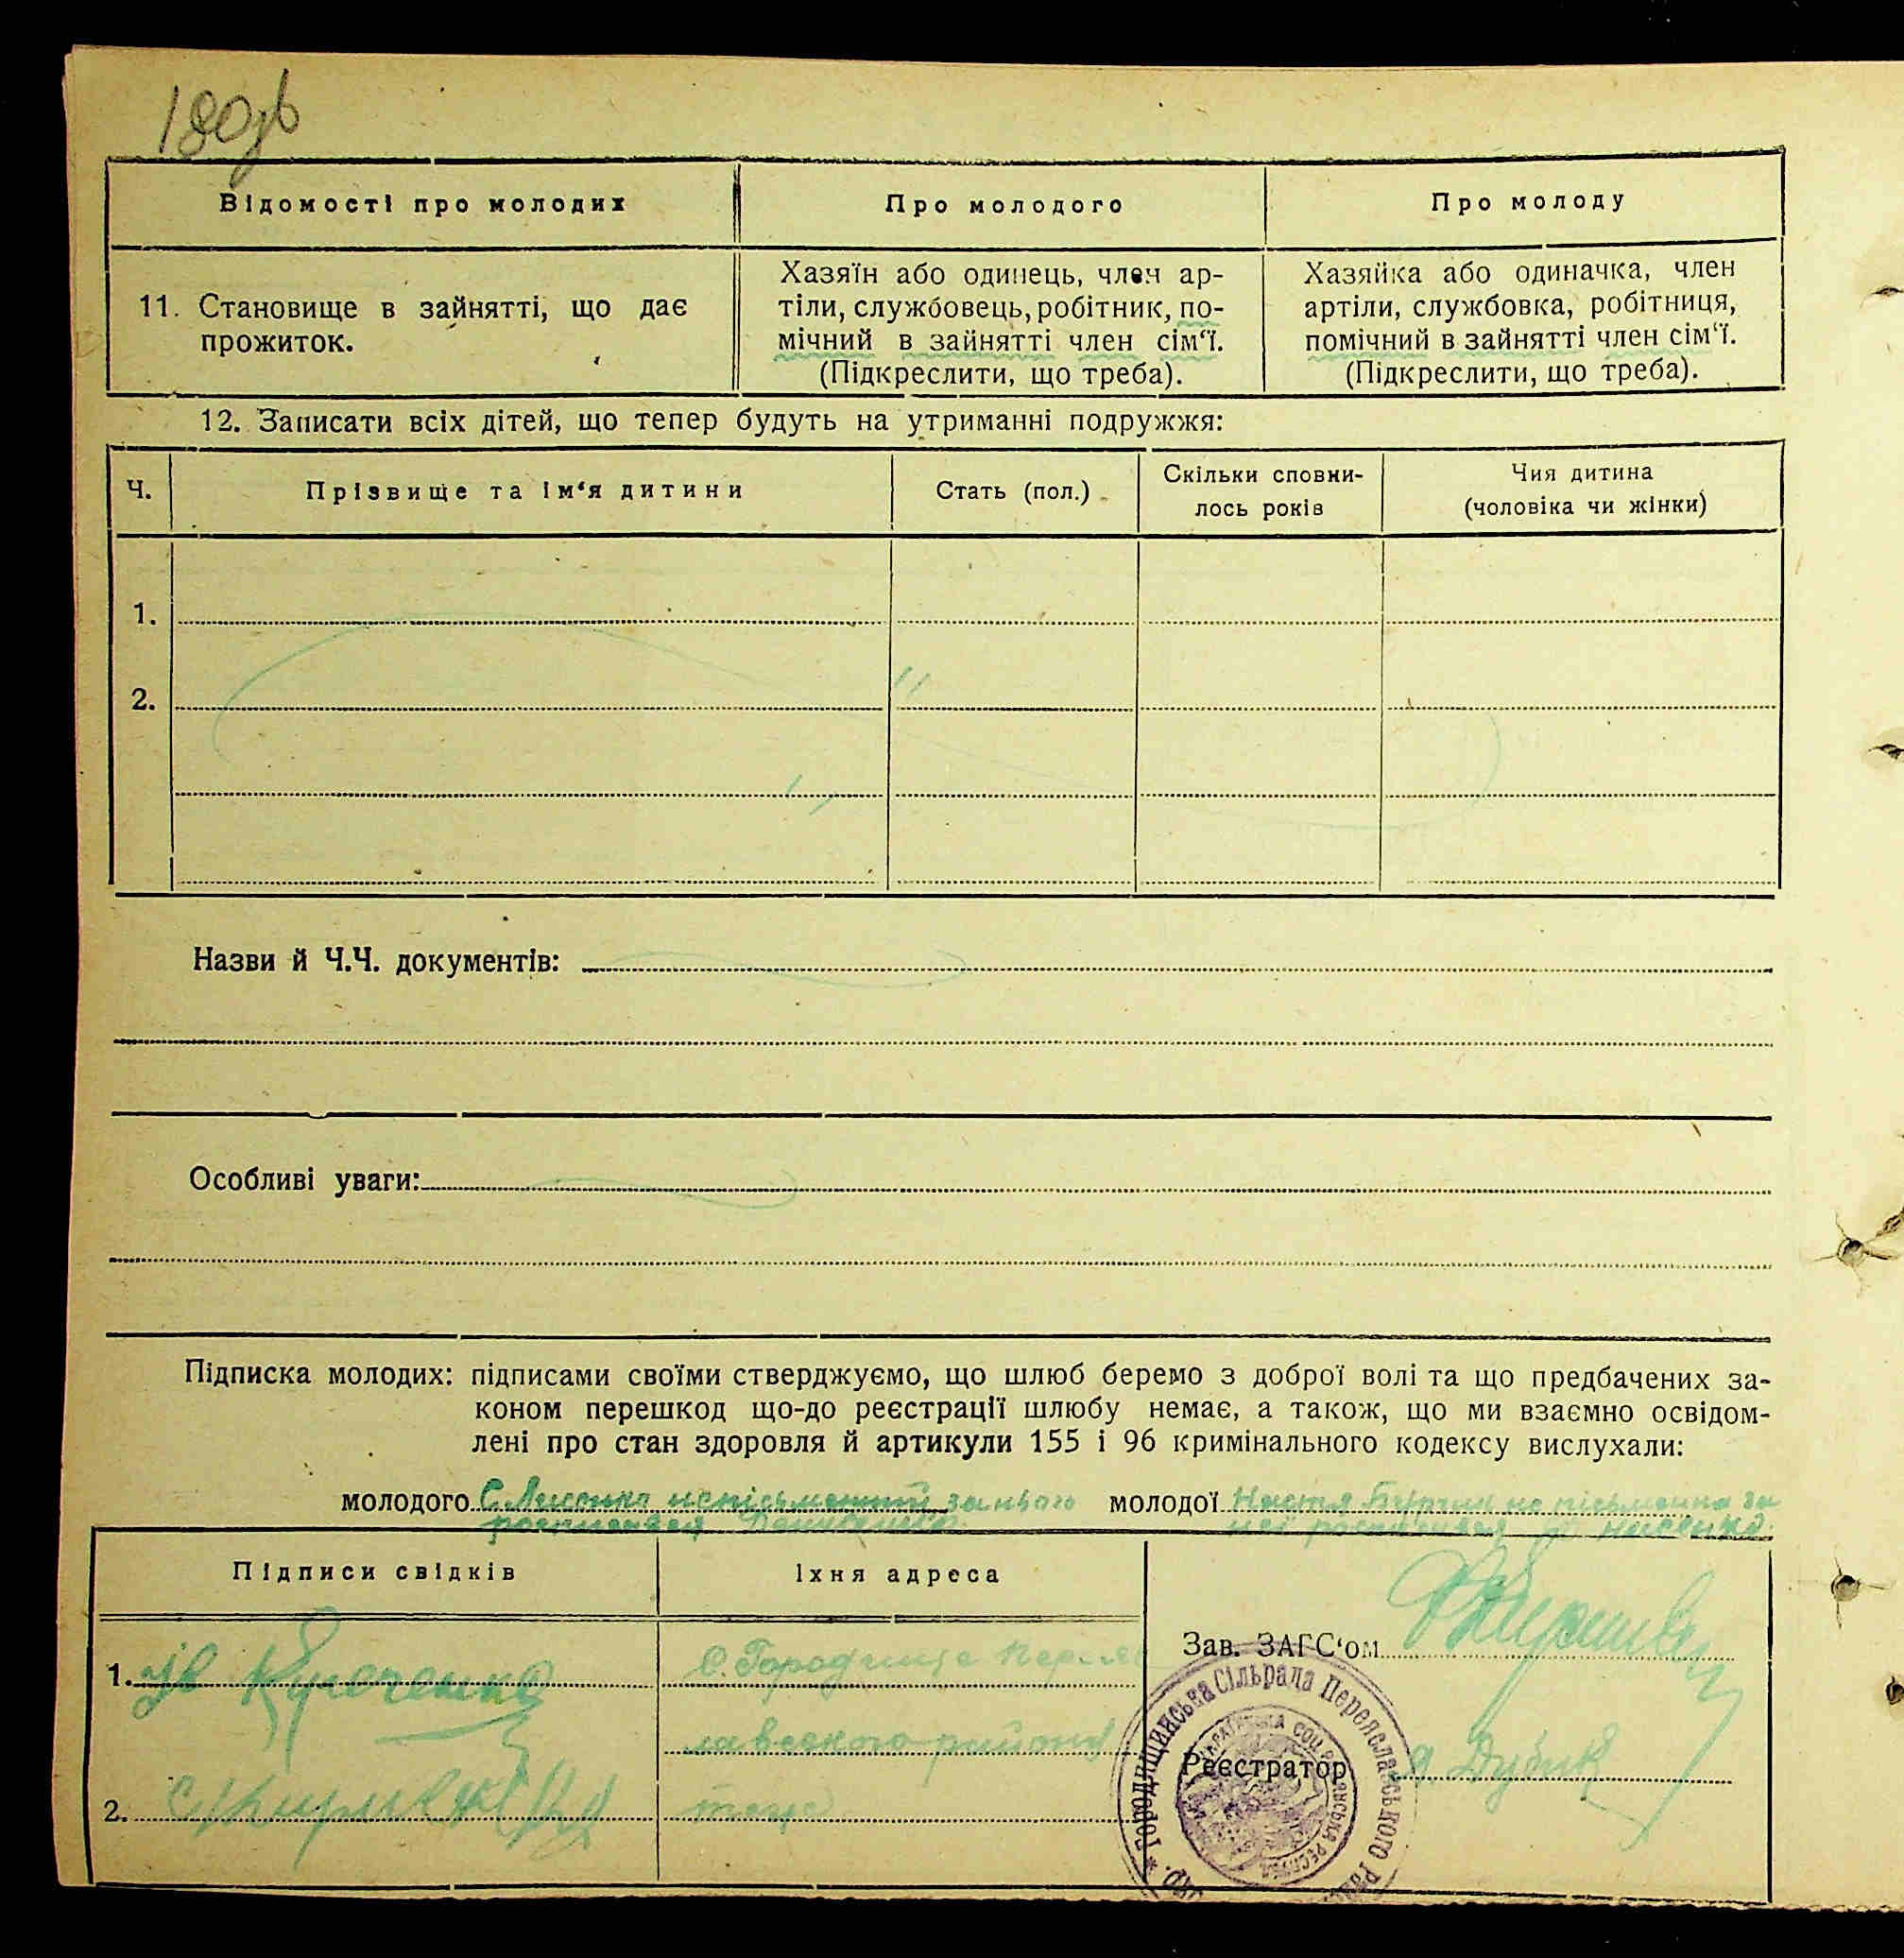 180зв
Відомості про молодих
Про молодого
Про молоду
11. Становище в зайнятті, що дає
прожиток.
Хазяїн або одинець, член ар-
тіли, службовець, робітник, по-
мічний в зайнятті член сім‘ї.
(Підкреслити, що треба).
Хазяйка або одиначка, член
артіли, службовка, робітниця,
помічний в зайнятті член сім‘ї.
(Підкреслити, що треба).
12. Записати всіх дітей, що тепер будуть на утриманні подружжя:
Ч.
Прізвище та ім‘я дитини
Стать (пол.)
Скільки сповни-
лось років
Чия дитина
(чоловіка чи жінки)
1.
2.
Назви й Ч.Ч. документів:
Особливі уваги:
Підписка молодих: підписами своїми стверджуємо, що шлюб беремо з доброї волі та що предбачених за-
коном перешкод що-до реєстрації шлюбу немає, а також, що ми взаємно освідом-
лені про стан здоровля й артикули 155 і 96 кримінального кодексу вислухали:
молодого С Лисенко непісьменний за нього
росписався
молодої Настя не пісьменна за
неї росписався
Підписи свідків
Їхня адреса
1. Ів
С. Городище Переяс
лавського району
2.
тоже
Зав. ЗАГС‘ом
Реєстратор Дубик
Городищинська Сільрада Переяславського
УКРАЇНСЬКА СОЦ. РАДЯНСЬКА РЕСПУБ